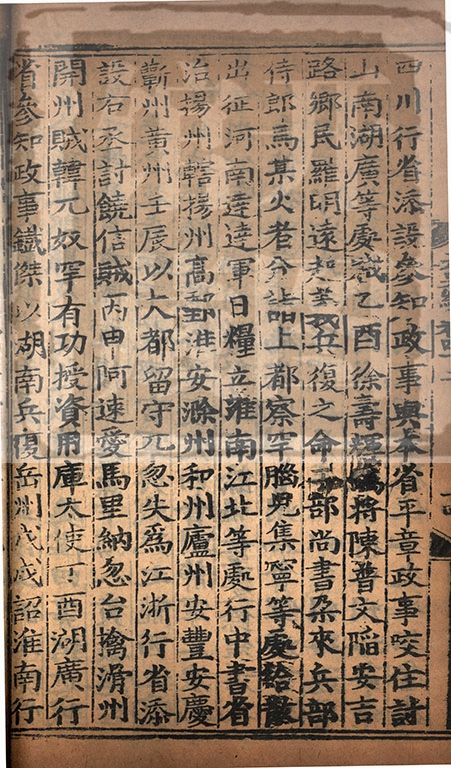 四川行省添設參知政事與本省平章政事咬住討
山南湖廣等處賊乙酉徐壽輝將陳普文陷安吉
路鄉民羅明遠起義兵復之命工部尚書朶來兵部
侍郎馬某火者分詣上都察罕腦兒集寧等處給散
出征河南達達軍口糧立淮南江北等處行中書省
治揚州轄揚州高郵淮安滁州和州廬州安豐安慶
蘄州黃州壬辰以大都留守兀忽失爲江浙行省添
設右丞討饒信賊丙申阿速愛馬里納忽台擒滑州
開州賊韓兀奴罕有功授資用庫大使丁酉湖廣行
省參知政事鐵傑以湖南兵復岳州戊戌詔淮南行